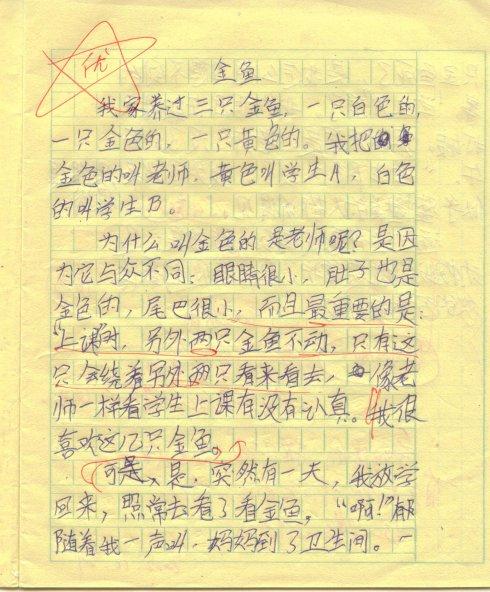 优
金鱼
我家养过三只金鱼，一只白色的，
一只金色的，一只黄色的。我把
金色的叫老师，黄色叫学生A，白色
的叫学生B。
为什么叫金色的是老师呢？是因
为它与众不同：眼睛很小，肚子也是
金色的，尾巴很小，而且最重要的是：
“上课”时，另外两只金鱼不动，只有这
只会绕着另外两只看来看去，像老
师一样看学生上课有没有认真。我很
喜欢这几只金鱼。
可是，是，突然有一天，我放学
回来，照常去看了看金鱼，“啊！”
随着我一声叫，妈妈到了卫生间。一